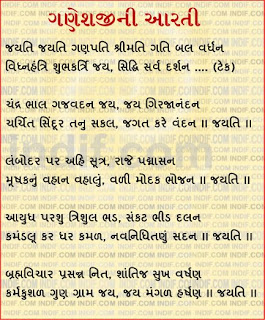 ગણેશજીની આરતી
જયતિ જયતિ ગણપતિ શ્રીમતિ ગતિ બલ વર્ધન
વિઘ્નહંત્રિ શુભકર્ત્રિ જય, સિદ્ધિ સર્વ દર્શન .... (ટેક)
ચંદ્ર ભાલ ગજવદન જય, જય ગિરજાનંદન
ચર્ચિત સિંદૂર તનુ સકલ, જગત કરે વંદન ॥ જયતિ ॥
લંબોદર પર અહિ સૂત્ર, રાજે પદ્માસન
મૂષકનું વહાન વ્હાલું, વળી મોદક ભોજન ॥ જયતિ ॥
આયુધ પરશુ ત્રિશુલ ભડ, સંકટ ભીડ દલન
કમંડલૂ કર ધર કમળ, નવનિધિતણું સદન ॥ જયતિ ॥
બ્રહ્મવિચાર પ્રસન્ન નિત, શાંતિજ સુખ વર્ષણ
કર્મકુશળ ગુણ ગ્રામ જય, જય મંગળ હર્ષણ ॥ જયતિ ॥
INDIF.COM
indif.com